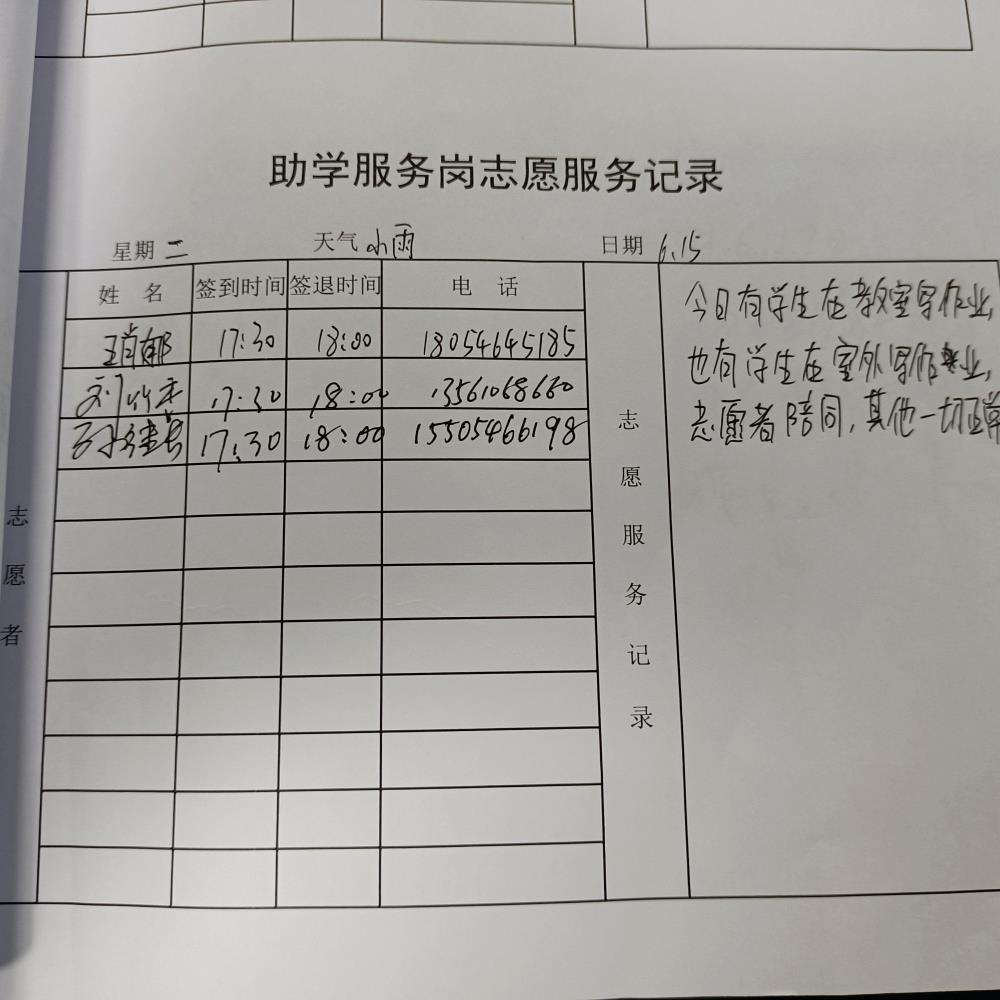 助学服务岗志愿服务记录
星期 二 天气 小雨 日期 6.15
姓 名 签到时间 签退时间 电 话
17:30 18:00 18054645185
17:30 18:00 13561068660
17:30 18:00 15505466198
志愿者
志愿服务记录
今日有学生在教室写作业,
也有学生在室外写作业,
志愿者陪同,其他一切正常